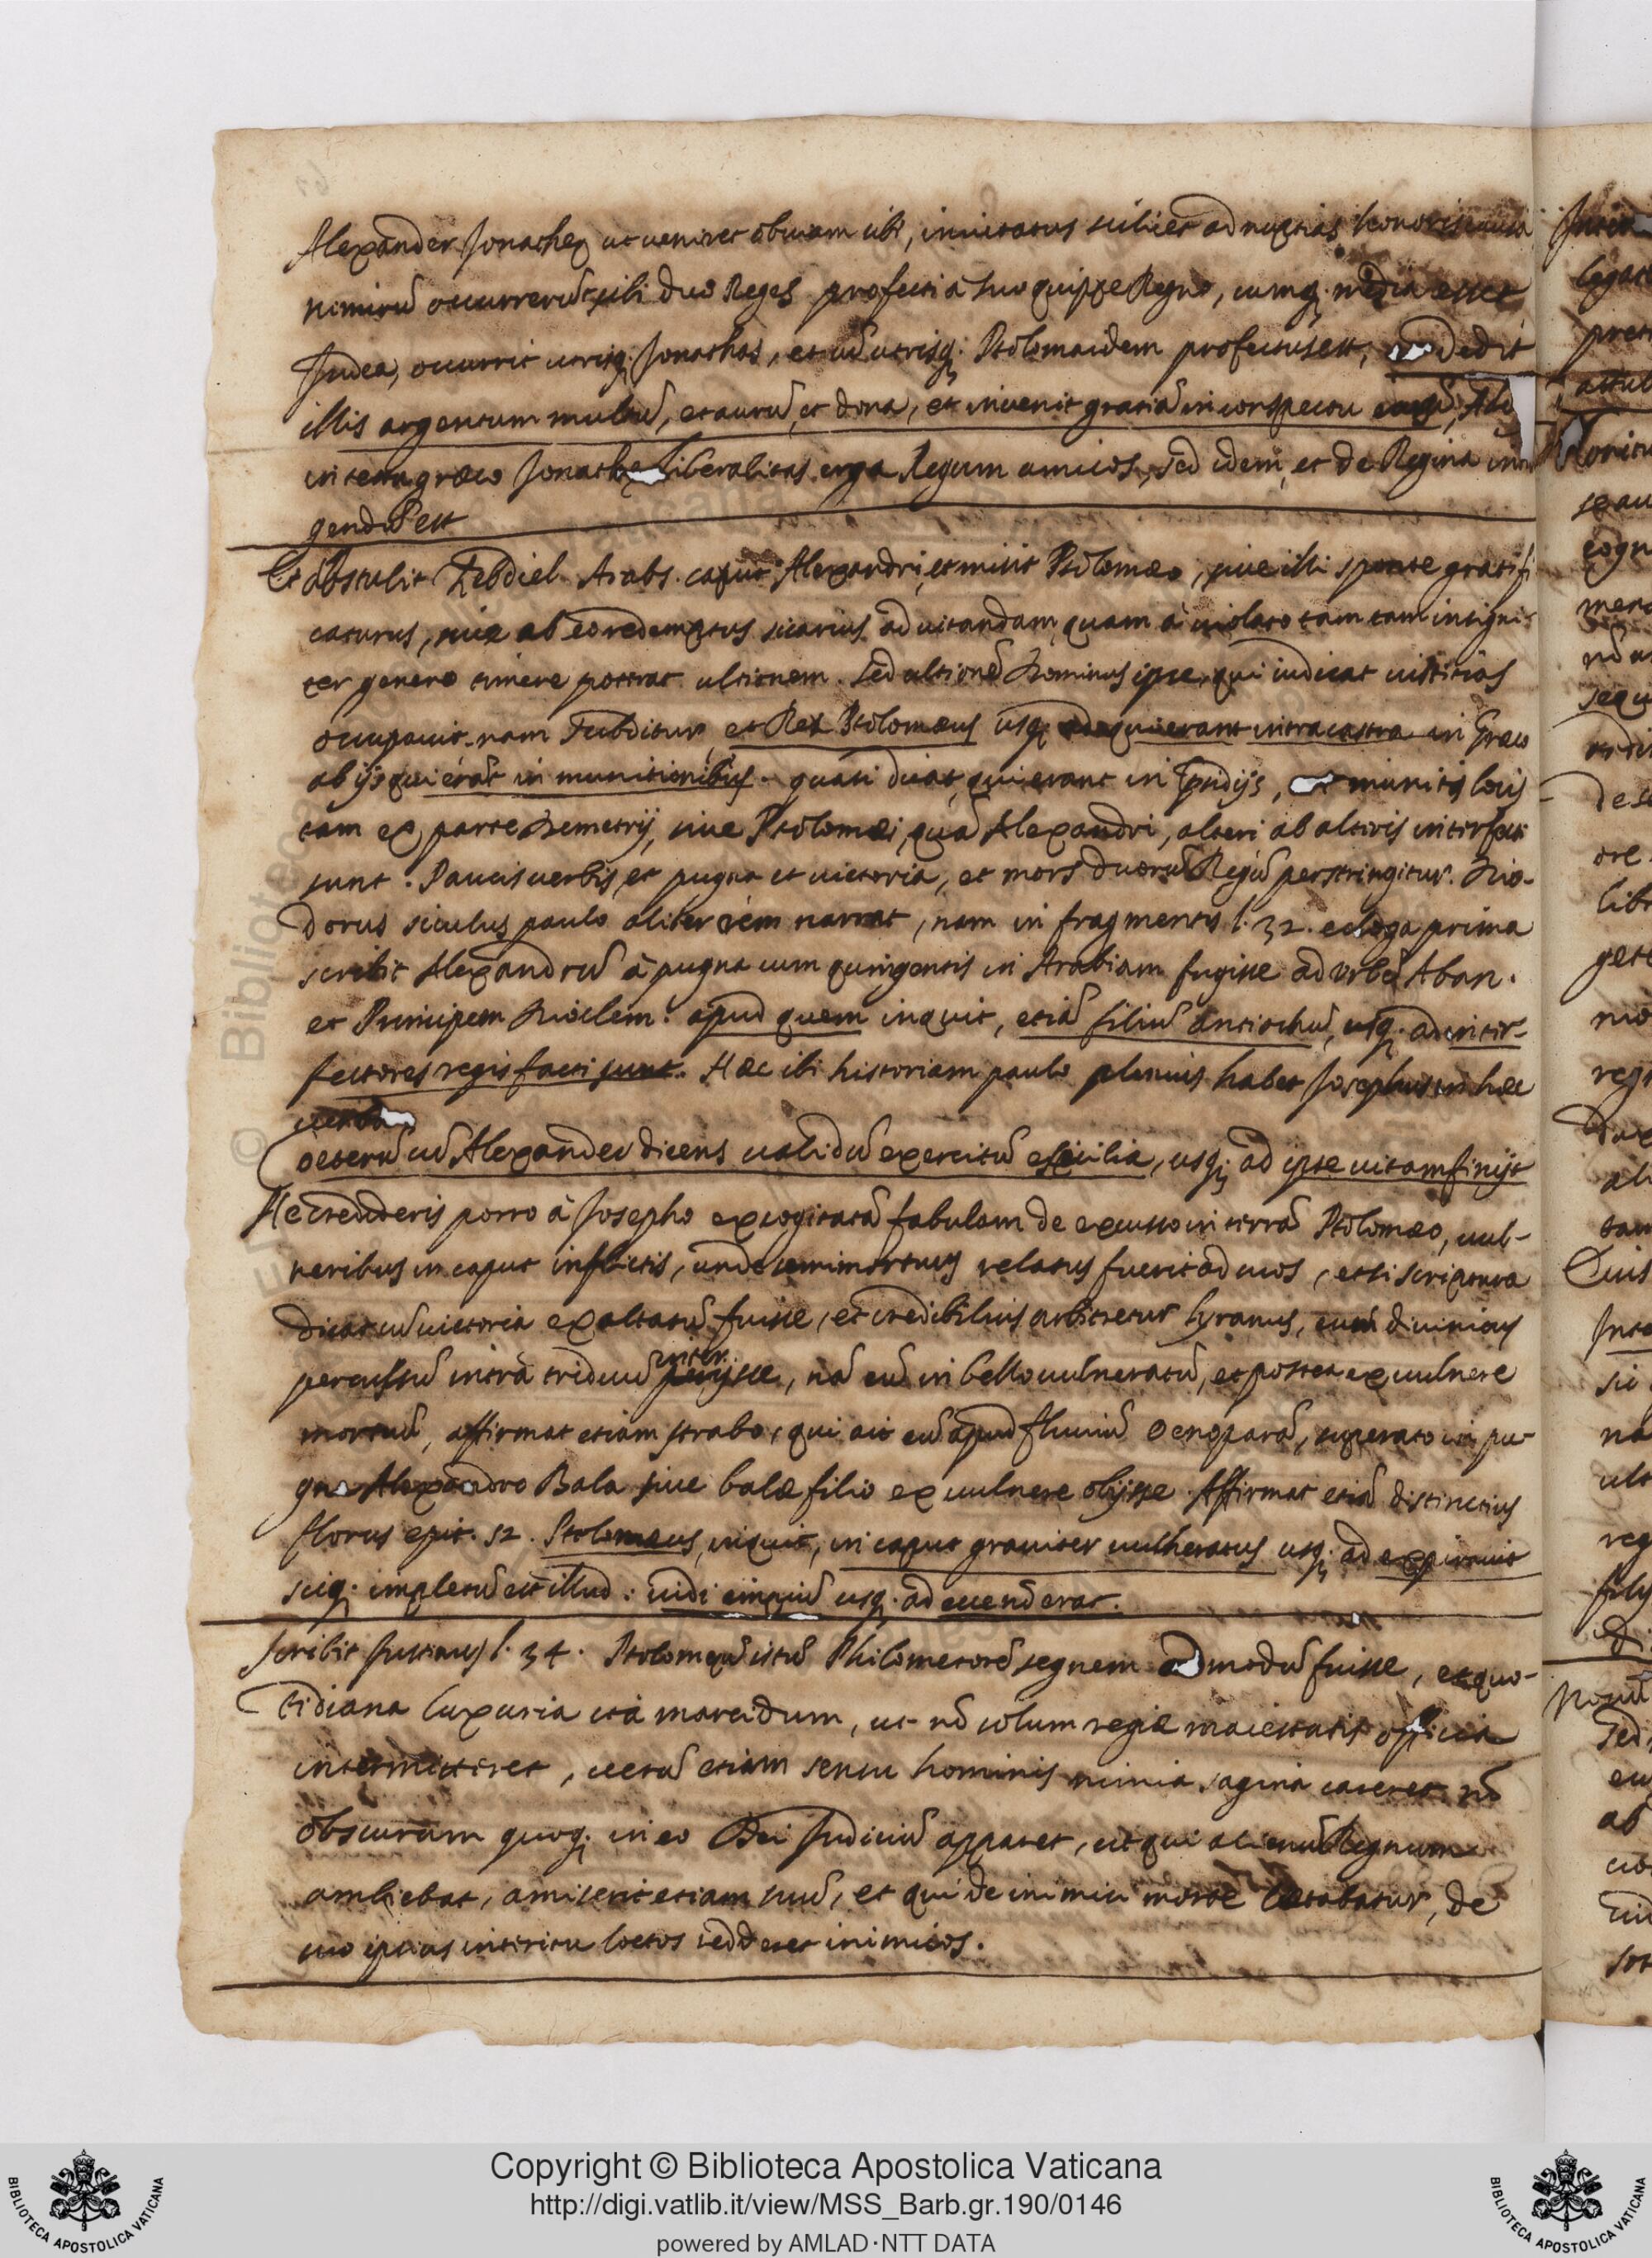 Alexander Jonathæ ut veniret obviam sibi, invitatus scilicet ad nuptias honoris causa
nimirũ occurrerũt sibi duo Reges profecti à suo quippe Regno, cumq; media esset
Judea, occurrit utrisq; Jonathas, et cũ utrisq; Ptolomaidem profectus est, dedit
illis argentum multũ, et aurũ, et dona, et invenit gratiã in conspectu eorũ,
in textu græco Jonathæ liberalitas erga Regum amicos, sed idem et de Regina
gendũ est
Et abstulit Zebdiel Arabs caput Alexandri, et misit Ptolomæo, sive illi sponte gratifi
caturus, sive ab eo redemptus sicarius ad vitandam, quam à violato tam tam insigni
ter genere timere poterat ultionem. Sed ultionẽ Dominus ipse, qui iudicat iustitias
occupavit. nam subditur, et Rex Ptolomæus usq; ad qui erant intra castra in Græco
ab ijs qui erãt in munitionibus. quasi dicat, qui erant in præsidijs, munitis locis
tam ex parte Demetrij, sive Ptolomæi, quã Alexandri, alteri ab alteris interfecti
sunt. Paucis verbis, et pugna et victoria, et mors duorũ Regũ perstringitur. Dio-
dorus siculus paulo aliter rem narrat, nam in fragmentis l. 32. ecloga prima
scribit Alexandrũ à pugna cum quingentis in Arabiam fugisse ad urbẽ Aban.
et Principem Dioclem. apud quem inquit, etiã filiũ Antiochũ, usq; ad inter-
fectores regis facti sunt. Hæc ibi historiam paulo plenius habet Josephus in hæc
verba
Ceterũ cũ Alexander dicens validũ exercitũ e Sicilia, usq; ad ipse vitam finijt
Ne credideris porro à Josepho excogitatã fabulam de excusso in terrã Ptolomæo, vul-
neribus in caput inflictis, unde semimortuus relatus fuerit ad suos, etsi scriptura
dicat cũ victoria exaltatũ fuisse, et credibilius arbitretur Lyranus, eum divinitus
percussũ intrà triduũ interijsse, nã eũ in bello vulneratũ, et postea ex vulnere
mortuũ, affirmat etiam strabo, qui ait eũ apud fluviũ Oenoparã, superato in pu-
gna Alexandro Bala sive balæ filio ex vulnere obijsse. Affirmat etiã distinctius
florus epit. 52. Ptolomæus, inquit, in caput graviter vulneratus usq; ad expiravit
sicq; impletũ est illud: vidi impiũ usq; ad
scribit Justinus l. 34. Ptolomæũ istũ Philometorẽ segnem admodũ fuisse, et quo-
tidiana luxuria ita marcidum, ut nõ solum regiæ maiestatis officia
intermitteret, verũ etiam sensu hominis nimia sagina careret. nõ
obscurum quoq; in eo Dei Judiciũ apparet, ut qui alienũ Regnum
ambiebat, amiserit etiam suũ, et qui de inimici morte lætabatur, de
suo ipsius interitu lætos redderet inimicos.
Copyright © Biblioteca Apostolica Vaticana
http://digi.vatlib.it/view/MSS_Barb.gr.190/0146
powered by AMLAD·NTT DATA
BIBLIOTECA APOSTOLICA VATICANA
BIBLIOTECA APOSTOLICA VATICANA